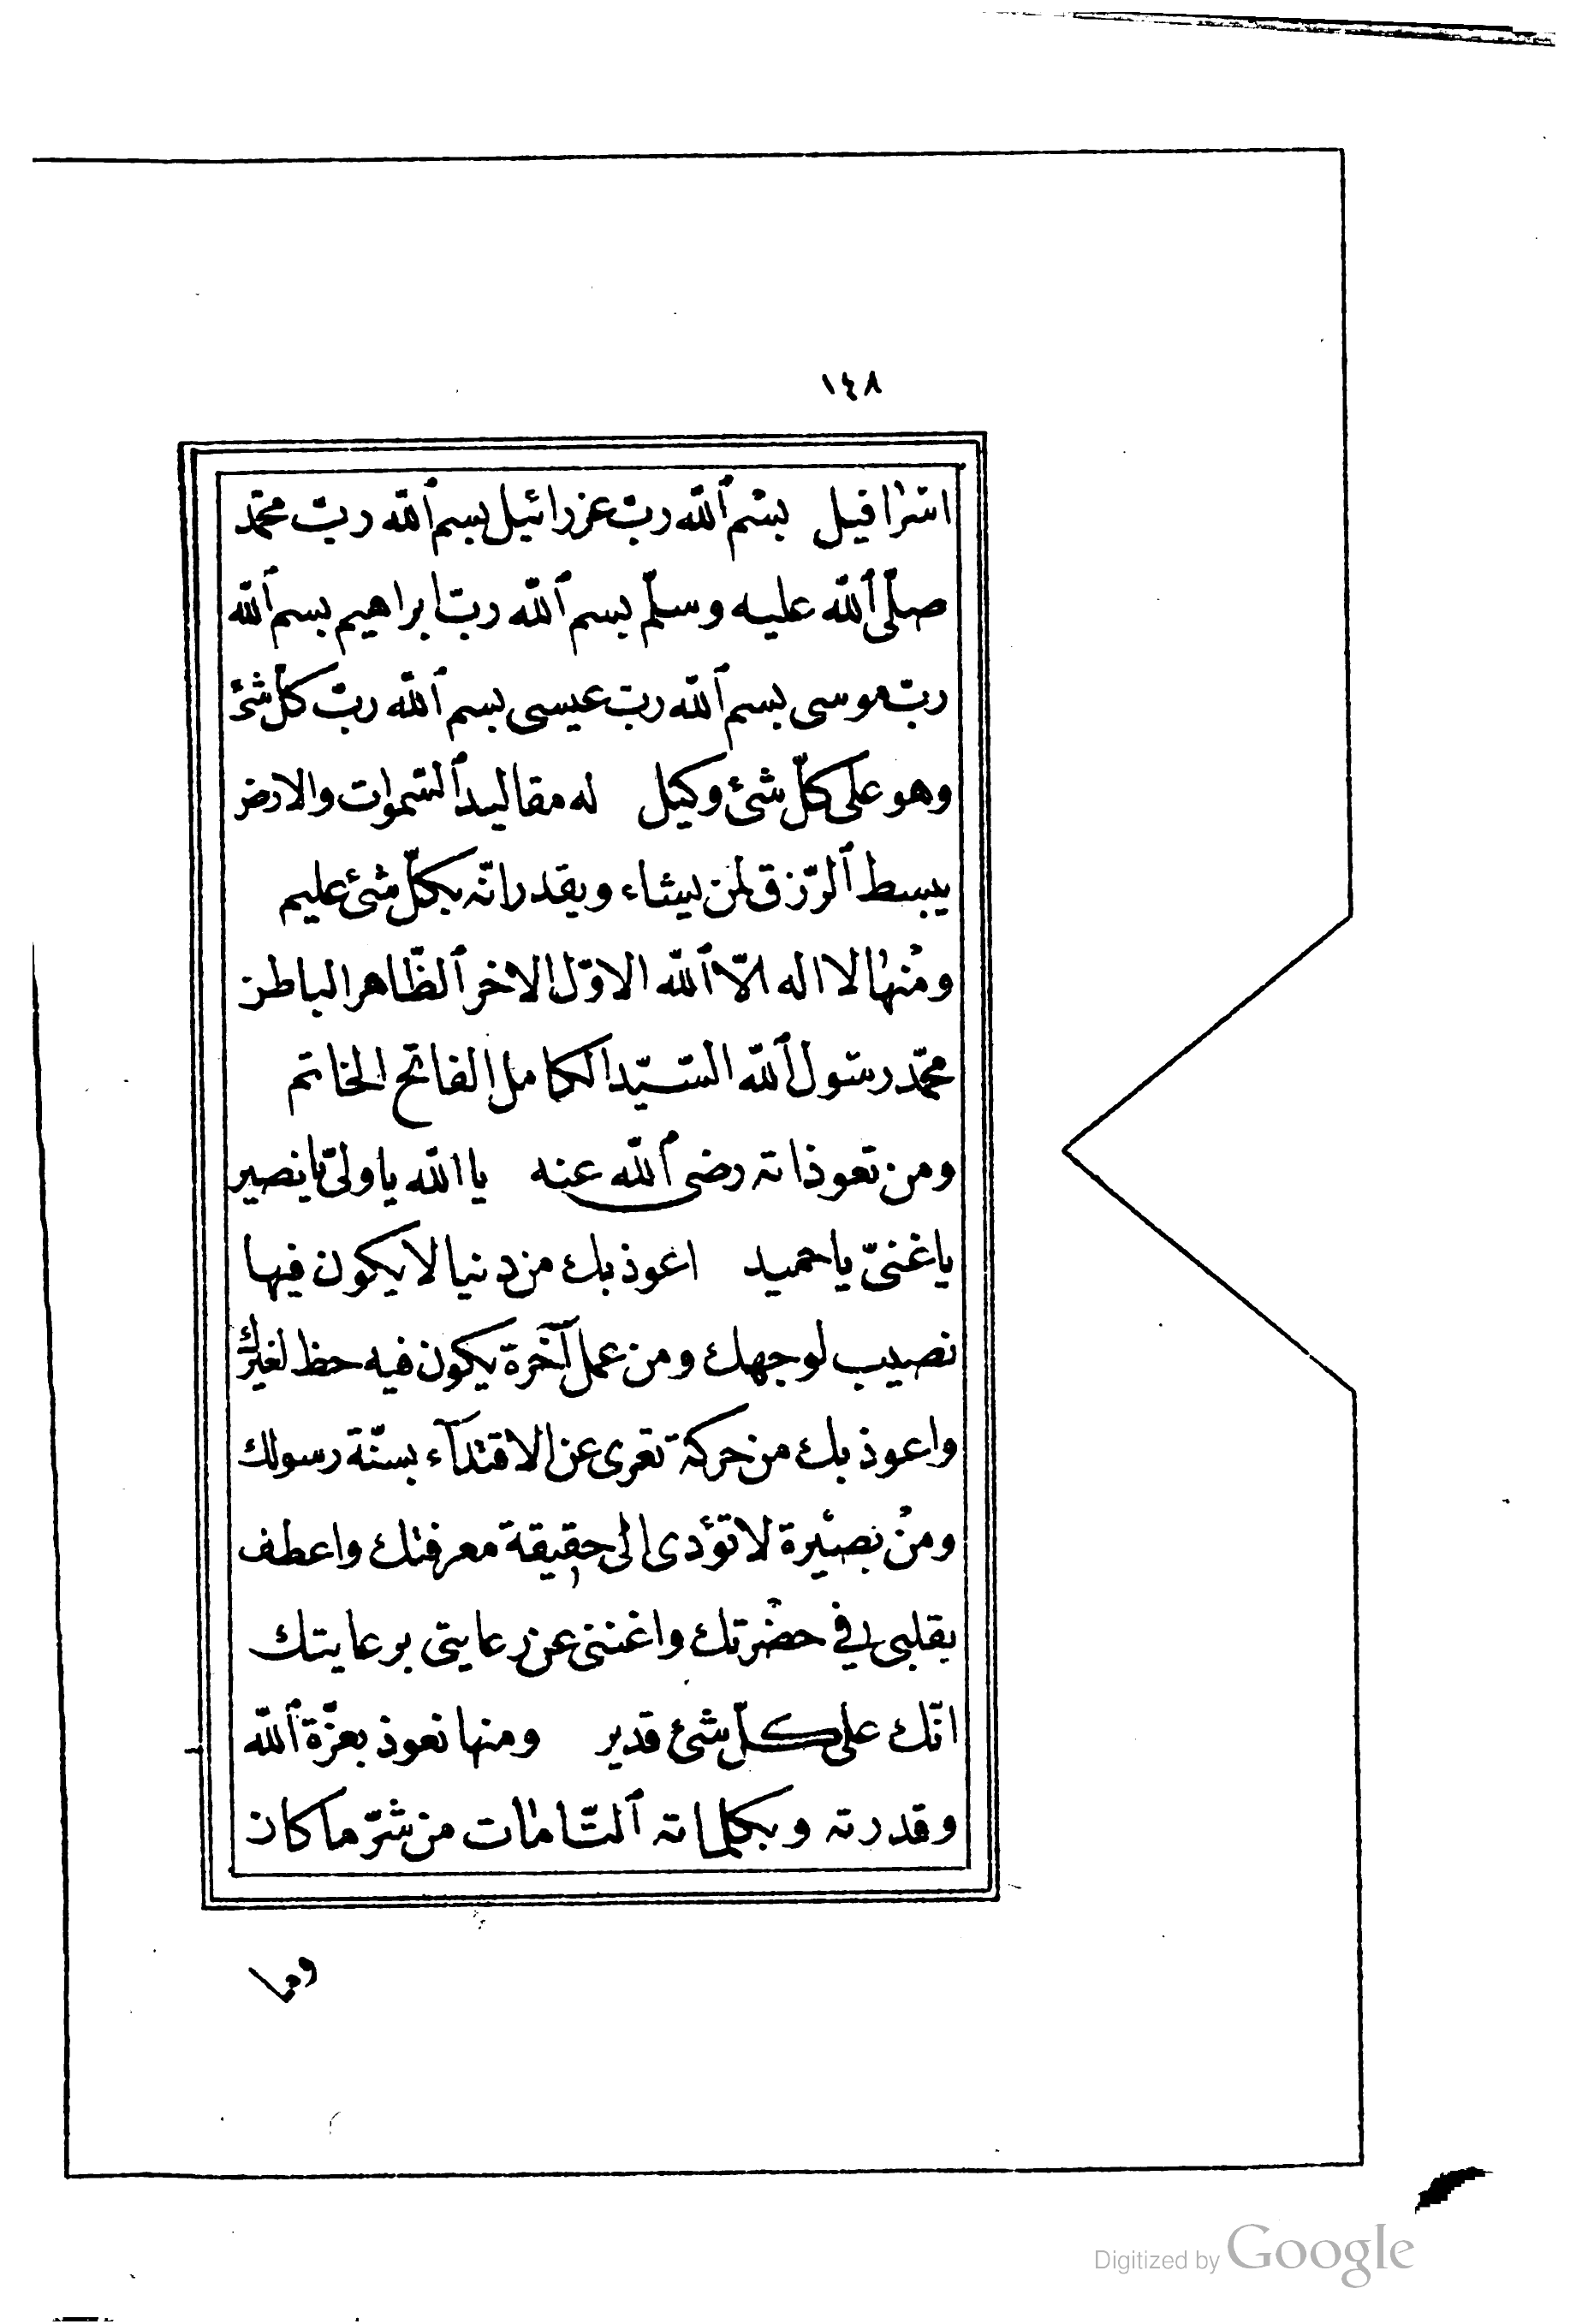 ١٤٨
اسرافيل بسم الله ربّ عزرائيل بسم الله ربّ محمّد
صلّى الله عليه وسلّم بسم الله ربّ ابراهيم بسم الله
ربّ موسى بسم الله ربّ عيسى بسم الله ربّ كلّ شئ
وهو على كلّ شئ وكيل له مقاليد السّموات والارض
يبسط الرّزق لمن يشاء ويقدر انّه بكلّ شئ عليم
ومنها لا اله الّا الله الاوّل الاخر الظّاهر الباطن
محمّد رسول الله السّيّد الكامل الفاتح الخاتم
ومن تعوذاته رضى الله عنه يا الله يا ولىّ يا نصير
يا غنىّ يا حميد اعوذ بك من دنيا لا يكون فيها
نصيب لوجهك ومن عمل آخرة يكون فيه حظ لغيرك
واعوذ بك من حركة تعرى عن الاقتدآء بسنّة رسولك
ومن بصيرة لا تؤدى الى حقيقة معرفتك واعطف
بقلبى فى حضرتك واغننى عن رعايتى برعايتك
انّك على كلّ شئ قدير ومنها نعوذ بعزّة الله
وقدرته وبكلماته التّامات من شرّ ما كان
وما
Digitized by Google